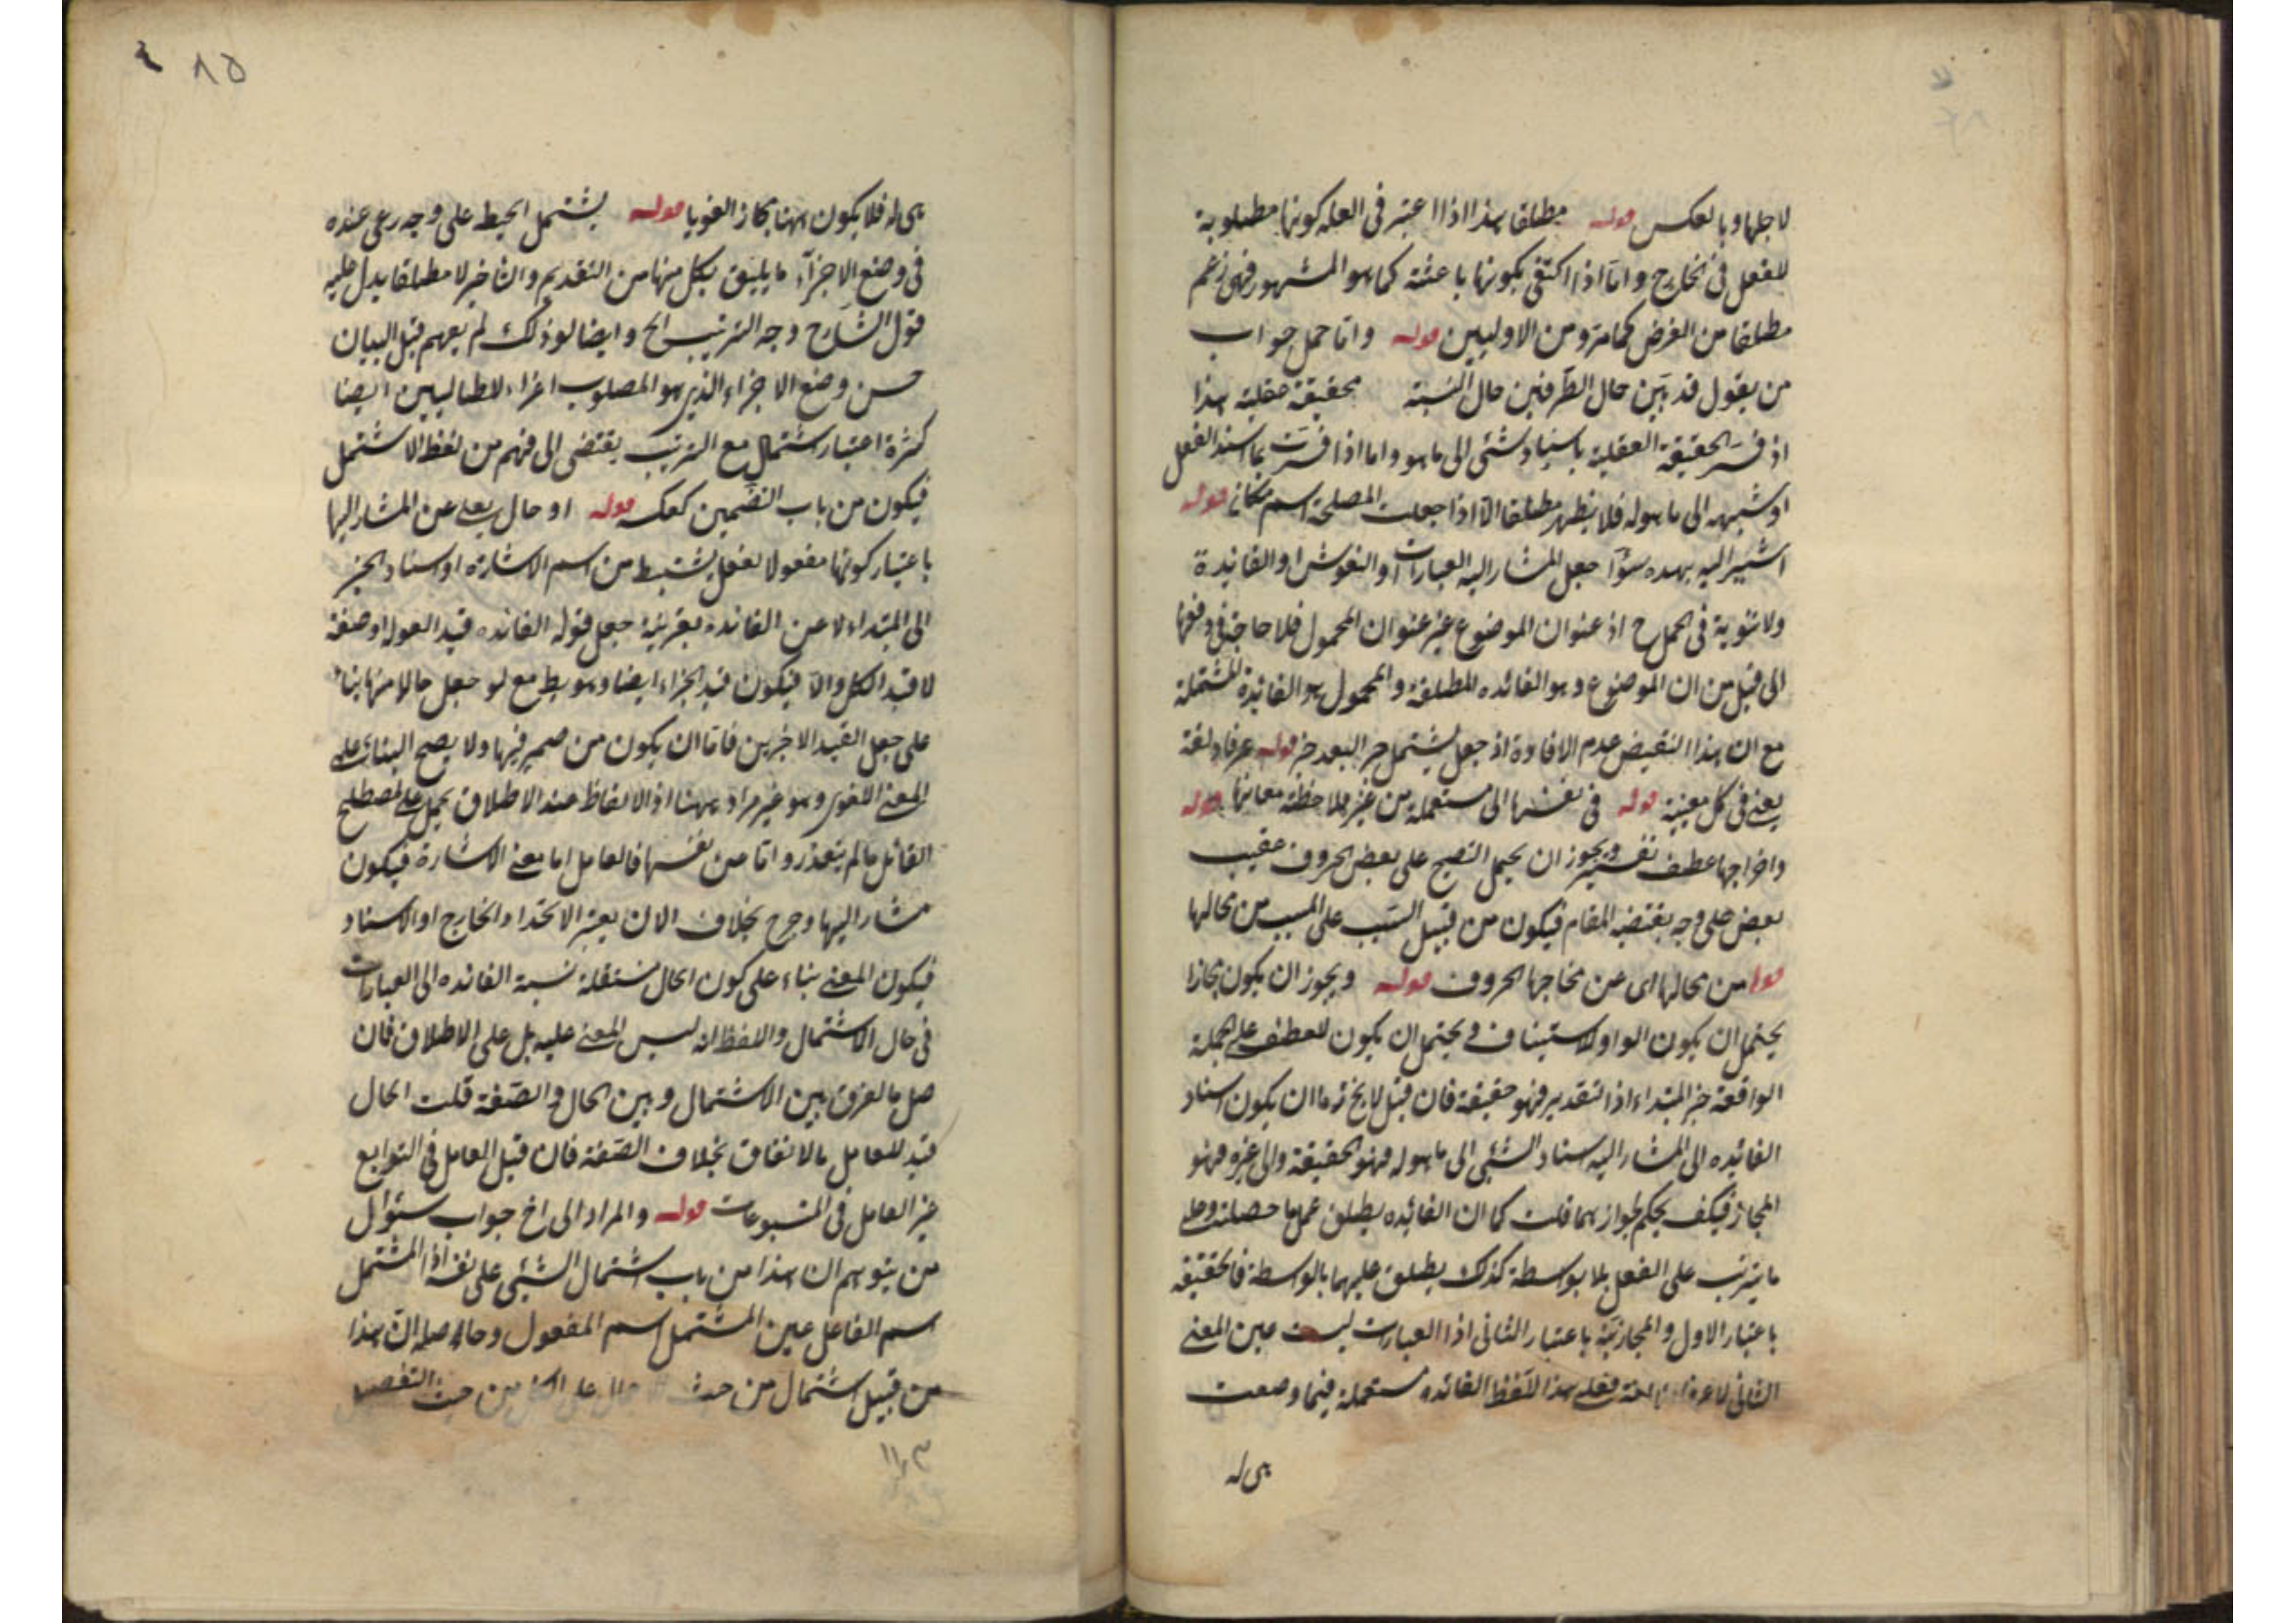 لاجلها وبالعكس قوله مطلقا هذا اذا اعتبر فى العلة كونها مطلوبة
للفعل فى الخارج واما اذا اكتفى بكونها باعثة كما هو المشهور فهى اعم
مطلقا من الغرض كما مر ومن الاوليين قوله واما حمل جواب
من يقول قد بين حال الطرفين حال النسبة محقيقة عقلية هذا
اذ فسر الحقيقة العقلية باسناد شئ الى ما هو واما اذا فسرت بما اسند الفعل
او شبهه الى ما هو له فلا يظهر مطلقا الا اذا جعلت المصلحة اسم مكان قوله
اشير اليه بهذه سوآ جعل المشار اليه العبارات او النقوش او الفائدة
ولا شوية فى الحمل ح اذ عنوان الموضوع غير عنوان المحمول فلا حاجة فى دفعها
الى قيل من ان الموضوع وهو الفائده المطلقة والمحمول هو الفائدة المشتملة
مع ان هذا النقيض عدم الافادة اذ جعل يشتمل خبر البعد خبر قوله عرفا ولغة
يعنى فى كل معينة قوله فى نفسها الى مستعملة من غير ملاحظة معانيها قوله
واخراجها عطف تفسير ويجوز ان يحمل التصحيح على بعض الحروف عقيب
بعض على وجه يقتضيه المقام فيكون من قبيل السبب على المسبب من محالها
قوله من محالها اى من مخاجها الحروف قوله ويجوز ان يكون مجازا
يحتمل ان يكون الواو للاستيناف ويحتمل ان يكون للعطف على الجملة
الواقعة خبر المبتداء اذا التقدير فهو حقيقة فان قيل لا يخ اما ان يكون اسناد
الفائده الى المشار اليه اسناد الشئ الى ما هو له فهو الحقيقة والى غيره فهو
المجاز فكيف يحكم بجوازهما قلت كما ان الفائده يطلق على ما حصلت وعلى
ما يترتب على الفعل بلا بوسطة كذلك يطلق عليهما بالوسطة فالحقيقة
باعتبار الاول والمجازية باعتبار الثانى اذا العبارت ليست عين المعنى
الثانى لا عرفا ولا لغة فعلى هذا اللفظ الفائده مستعملة فيما وضعت
هى له
٨٥
هى له فلا يكون ههنا مجاز العويا قوله يشتمل الحيط على وجه رعى عنده
فى وضع الاجزآء ما يليق بكل منها من التقديم والتاخير لا مطلقا يدل عليه
قول الشارح وجه الترتيب الح وايضا لو ذلك لم يعهم قبل البيان
حسن وضع الاجزاء الذى هو المصلوب اغراء للطالبين ايضا
كثرة اعتبار شتمال مع الترتيب يقتضى الى فهم من لفظ الاشتمل
فيكون من باب التضمين كعكسه قوله او حال يعنى عن المشار اليها
باعتبار كونها مفعولا لفعل يشتبط من اسم الاشاره او اسناد الخبر
الى المبتداء لا عن الفائدة بقرينة جعل قوله الفائده قيد العول او صفة
لا قيد الكل والا فيكون قيد الجزاء ايضا وهو بط مع لو جعل حالا منها بناء
على جعل القيد الاخرين فاما ان يكون من ضمير فيها ولا يصح البناء على
المعنى اللغوى وهو غير مراد ههنا اذ الالفاظ عند الاطلاق يحمل على مصطلح
القائل ما لم يتعذر واما عين نفسها فالعامل اما معنى الاشارة فيكون
مشار اليها وجرح بخلاف الان يعتبر الاتحد او الخارج او الاسناد
فيكون المعنى بناء على كون الحال منتقلة نسبة الفائده الى العبارات
فى حال الاشتمال والالفظ انه ليس المعنى عليه بل على الاطلاق فان
صل ما لفرق بين الاشتمال وبين الحال والصفة قلت الحال
قيد للعامل بالاتفاق بخلاف الصفة فان قيل العامل فى التوابع
غير العامل فى المتبوعات قوله والمراد الى اخ جواب سئوال
من يتوهم ان هذا من باب اشتمال الشئ على نفسه اذ المشتمل
اسم الفاعل عين المشتمل اسم المفعول وحاصله ان هذا
من قبيل اشتمال من حيث الاجمال على الكل من حيث التفصيل